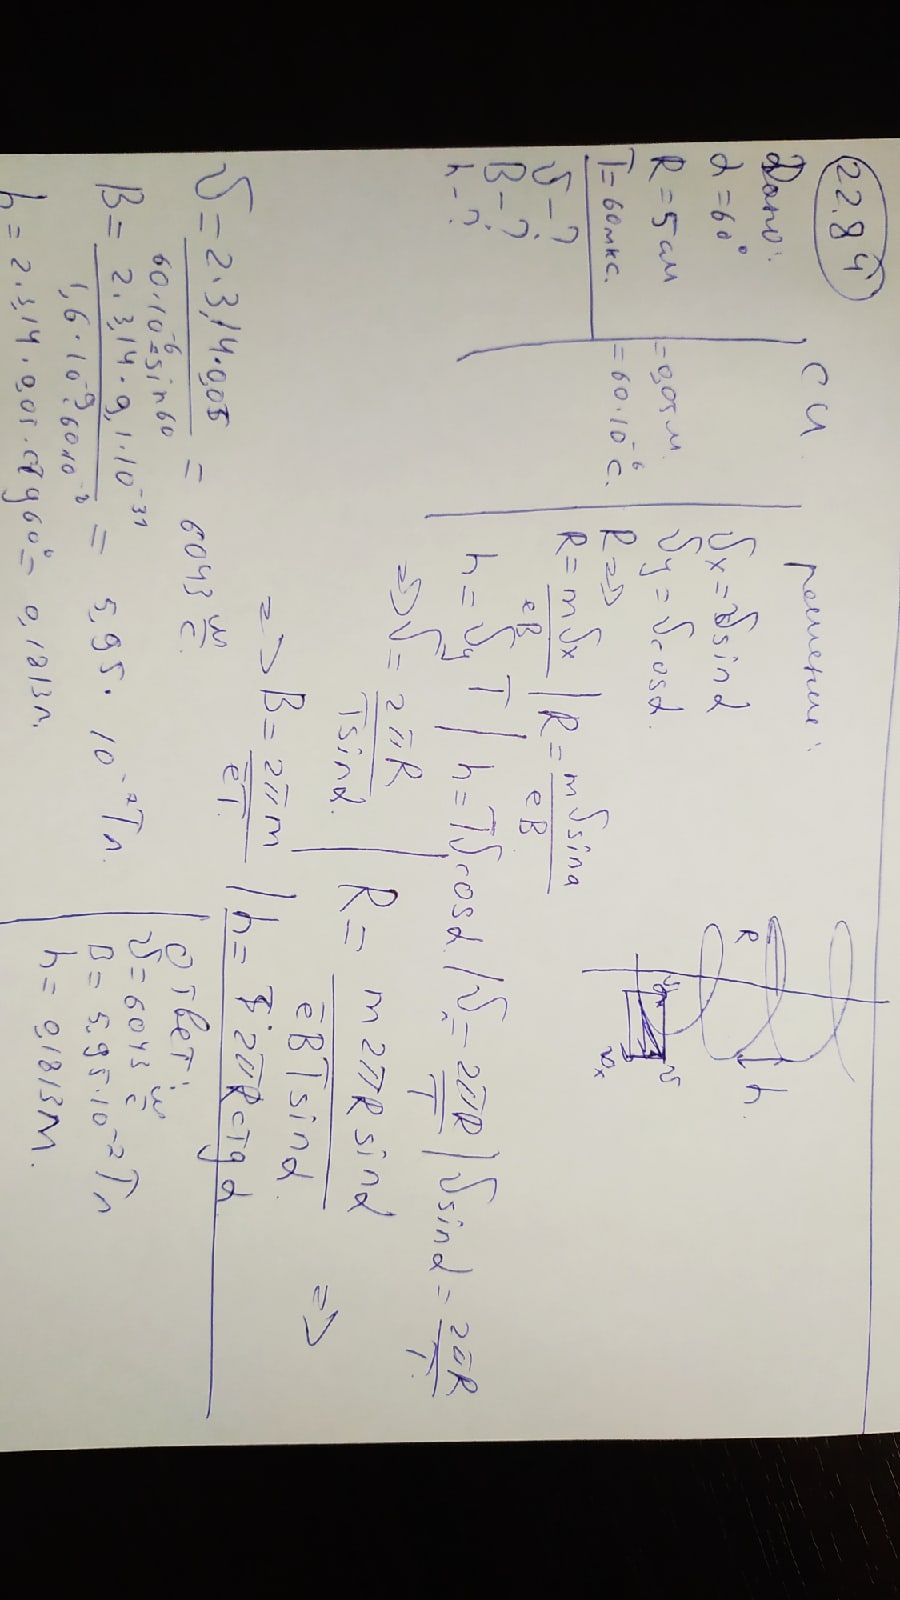 22.84
Дано:
α = 60°
R = 5 см
T = 60 мкс.
υ - ?
B - ?
h - ?
СИ
= 0,05 м.
= 60·10⁻⁶ с.
решение:
υx = υ sin α
υy = υ cos α.
R =>
R = mυx / eB | R = mυ sin α / eB
h = υy T | h = Tυ cos α | υx = 2πR / T | υ sin α = 2πR / T.
=> υ = 2πR / T sin α. | R = m 2πR sin α / eBT sin α. =>
=> B = 2πm / eT. | h = 2πR ctg α
R
h
υy
υ
υx
υ = 2·3,14·0,05 / 60·10⁻⁶ sin 60 = 6043 м/с.
B = 2·3,14·9,1·10⁻³¹ / 1,6·10⁻⁹·60·10⁻² = 5,95·10⁻² Тл.
h = 2·3,14·0,05·ctg 60° = 0,1813 м.
Ответ:
υ = 6043 м/с
B = 5,95·10⁻² Тл
h = 0,1813 м.